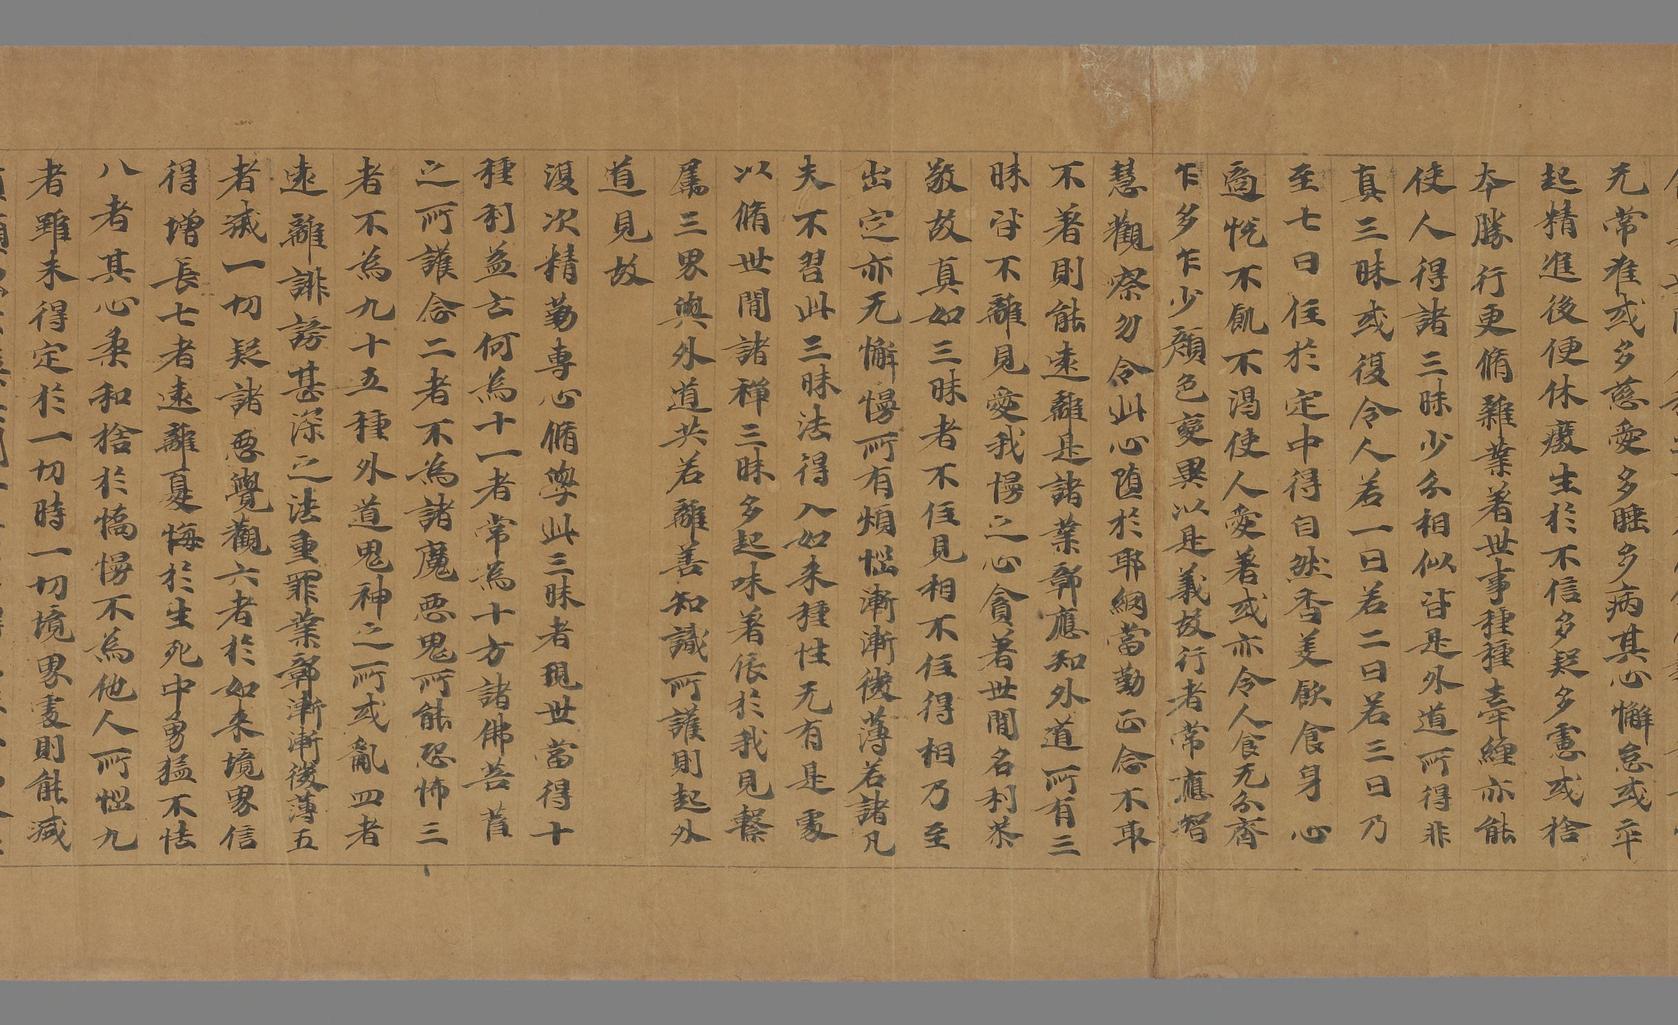 无常准或多慈愛多睡多病其心懈怠或卒
起精進後便休癈生於不信多疑多慮或捨
本勝行更脩雜業著世事種種牽纏亦能
使人得諸三昧少分相似皆是外道所得非
真三昧或復令人若一日若二日若三日乃
至七日住於定中得自然香美飲食身心
適悅不飢不渴使人愛著或亦令人食无分齊
乍多乍少顏色變異以是義故行者常應智
慧觀察勿令此心墮於耶網當勤正念不取
不著則能遠離是諸業鄣應知外道所有三
昧皆不離見愛我慢之心貪著世間名利恭
敬故真如三昧者不住見相不住得相乃至
出定亦无懈慢所有煩惱漸漸微薄若諸凡
夫不習此三昧法得入如来種性无有是處
以脩世間諸禪三昧多起味著依於我見繫
屬三界與外道共若離善知識所護則起外
道見故
復次精勤專心脩學此三昧者現世當得十
種利益云何為十一者常為十方諸佛菩薩
之所護念二者不為諸魔惡鬼所能恐怖三
者不為九十五種外道鬼神之所或亂四者
遠離誹謗甚深之法重罪業鄣漸漸微薄五
者滅一切疑諸惡覺觀六者於如来境界信
得增長七者遠離憂悔於生死中勇猛不怯
八者其心柔和捨於憍慢不為他人所惱九
者雖未得定於一切時一切境界處則能減